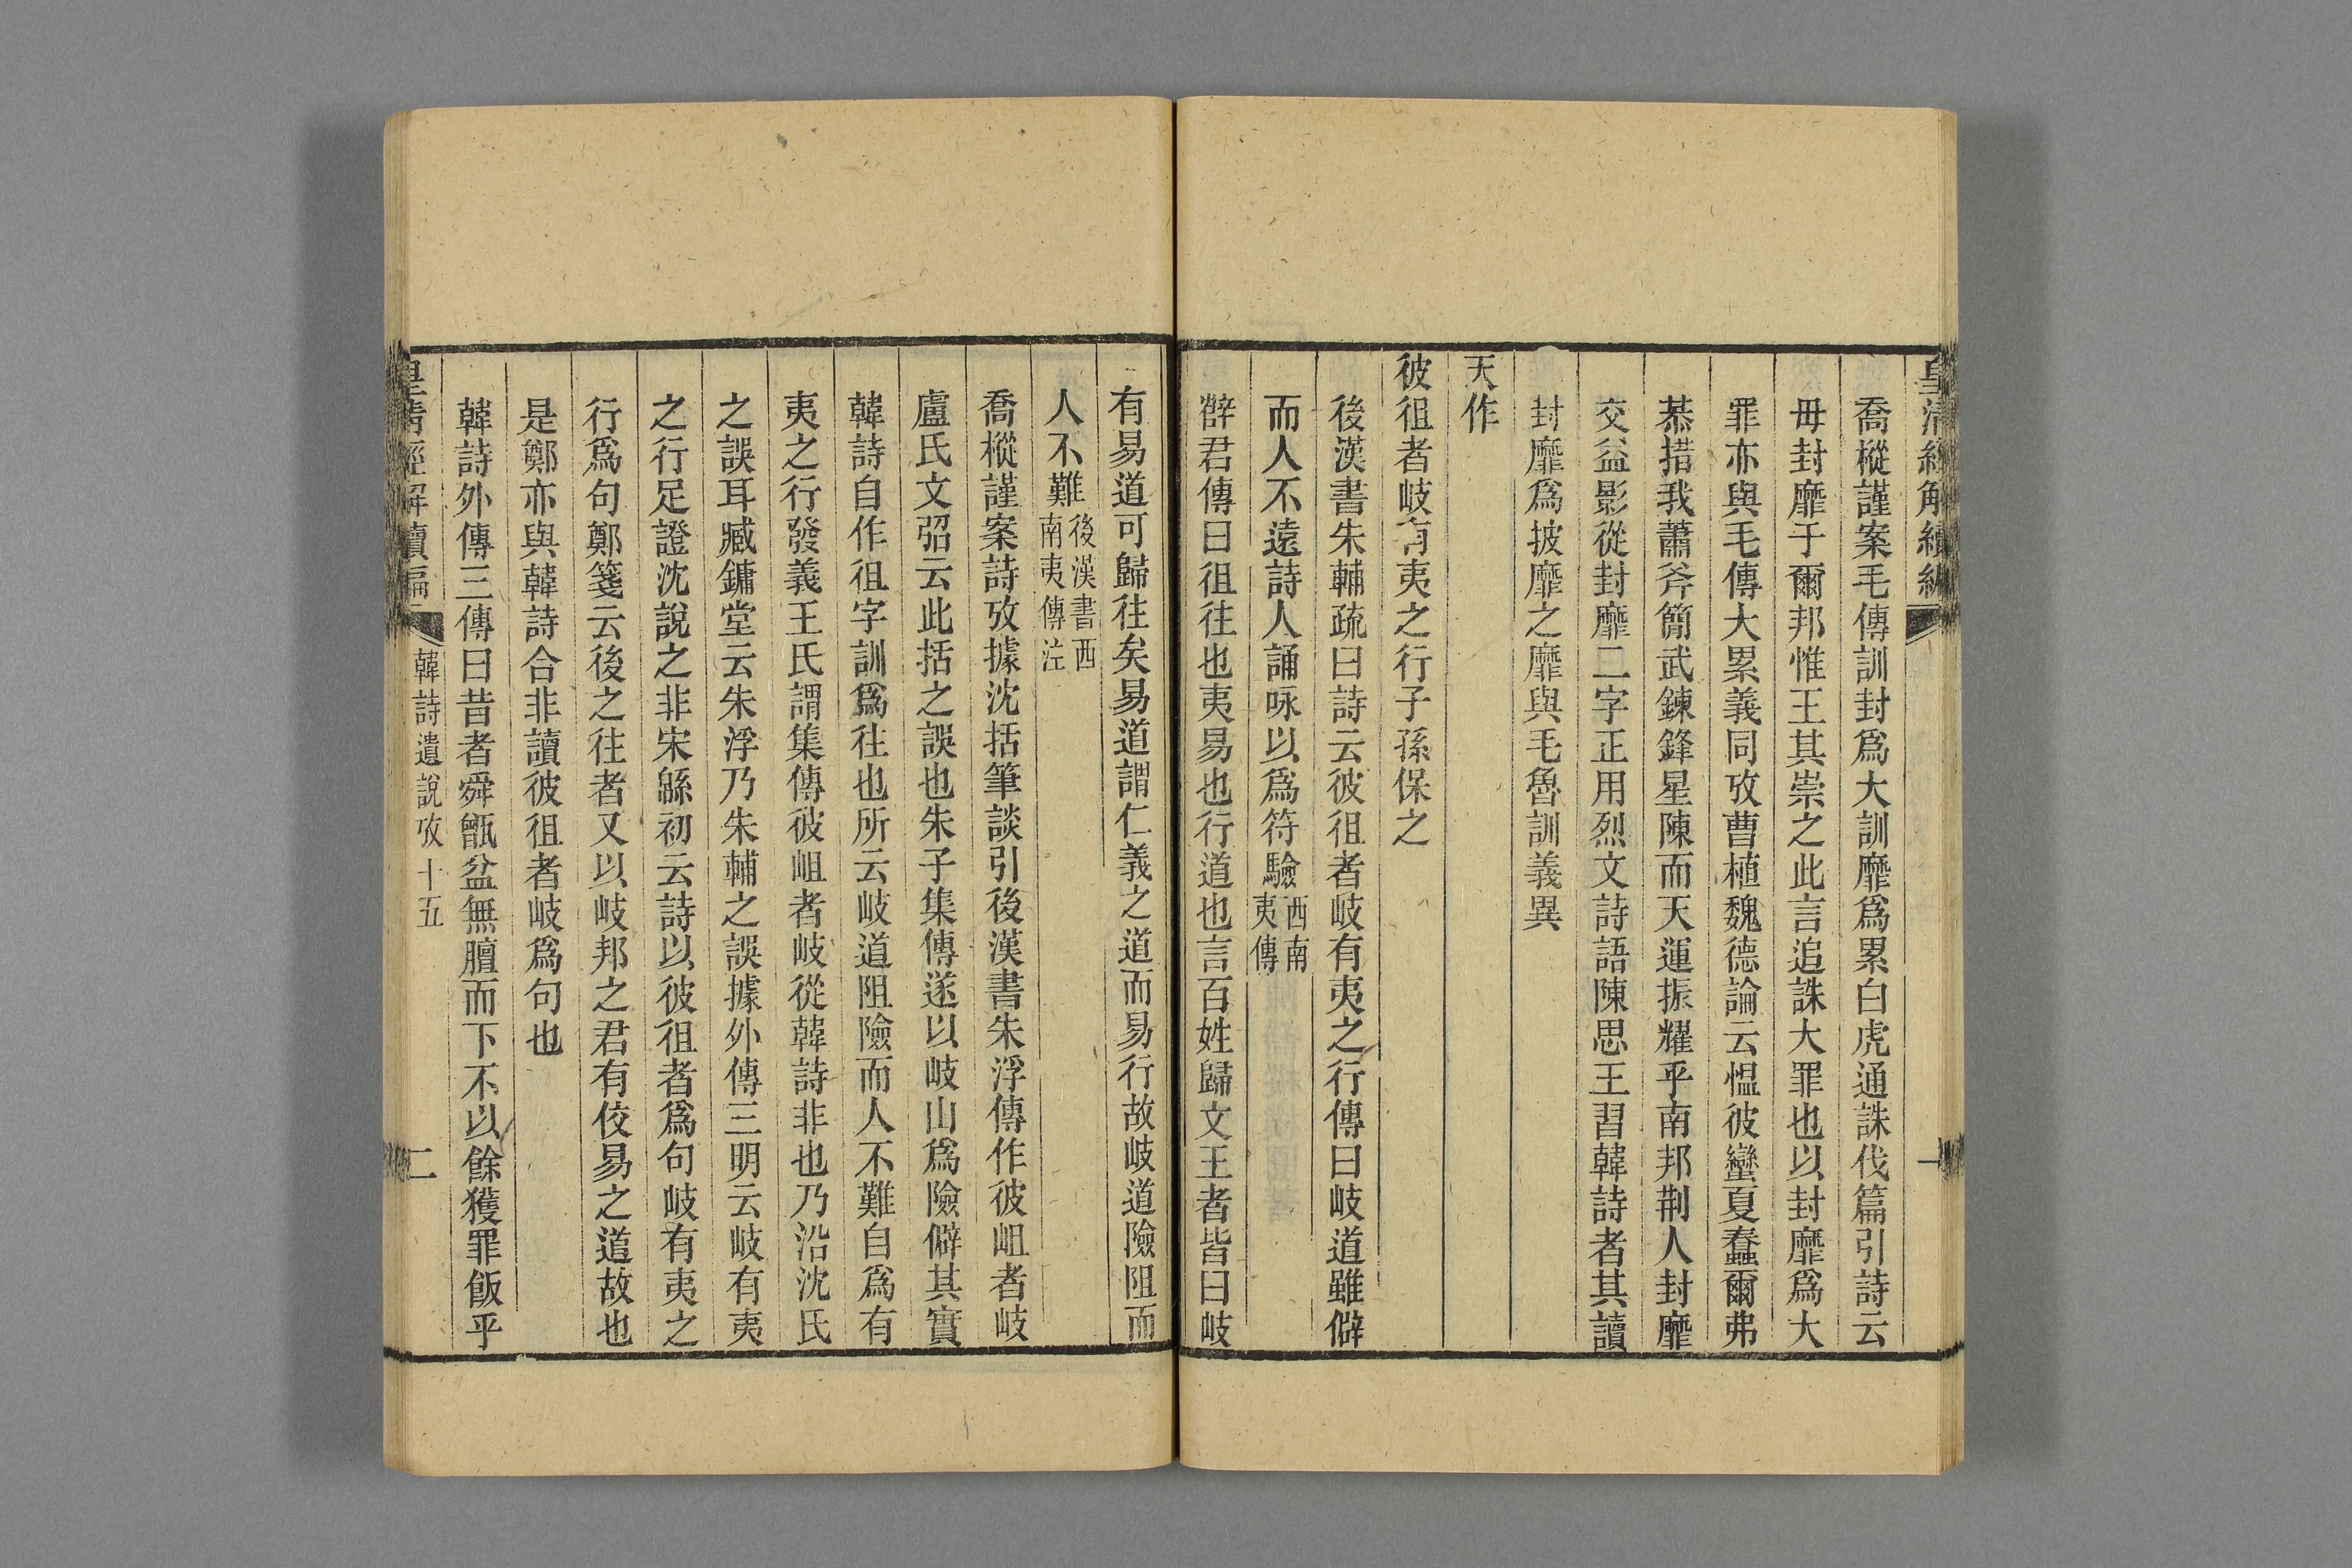 皇清經解續編
一
喬樅謹案毛傳訓封爲大訓靡爲累白虎通誅伐篇引詩云
毋封靡于爾邦惟王其崇之此言追誅大罪也以封靡爲大
罪亦與毛傳大累義同攷曹植魏德論云慍彼蠻夏蠢爾弗
恭措我蕭斧簡武鍊鋒星陳而天運振耀乎南邦荆人封靡
交益影從封靡二字正用烈文詩語陳思王習韓詩者其讀
封靡爲披靡之靡與毛魯訓義異
天作
彼徂者岐有夷之行子孫保之
後漢書朱輔疏曰詩云彼徂者岐有夷之行傳曰岐道雖僻
而人不遠詩人誦咏以爲符驗西南夷傳
辥君傳曰徂往也夷易也行道也言百姓歸文王者皆曰岐
有易道可歸往矣易道謂仁義之道而易行故岐道險阻而
人不難後漢書西南夷傳注
喬樅謹案詩攷據沈括筆談引後漢書朱浮傳作彼岨者岐
盧氏文弨云此括之誤也朱子集傳遂以岐山爲險僻其實
韓詩自作徂字訓爲往也所云岐道阻險而人不難自爲有
夷之行發義王氏謂集傳彼岨者岐從韓詩非也乃沿沈氏
之誤耳臧鏞堂云朱浮乃朱輔之誤據外傳三明云岐有夷
之行足證沈說之非宋緜初云詩以彼徂者爲句岐有夷之
行爲句鄭箋云後之往者又以岐邦之君有佼易之道故也
是鄭亦與韓詩合非讀彼徂者岐爲句也
韓詩外傳三傳曰昔者舜甑盆無膻而下不以餘獲罪飯乎
皇清經解續編
韓詩遺說攷十五
二